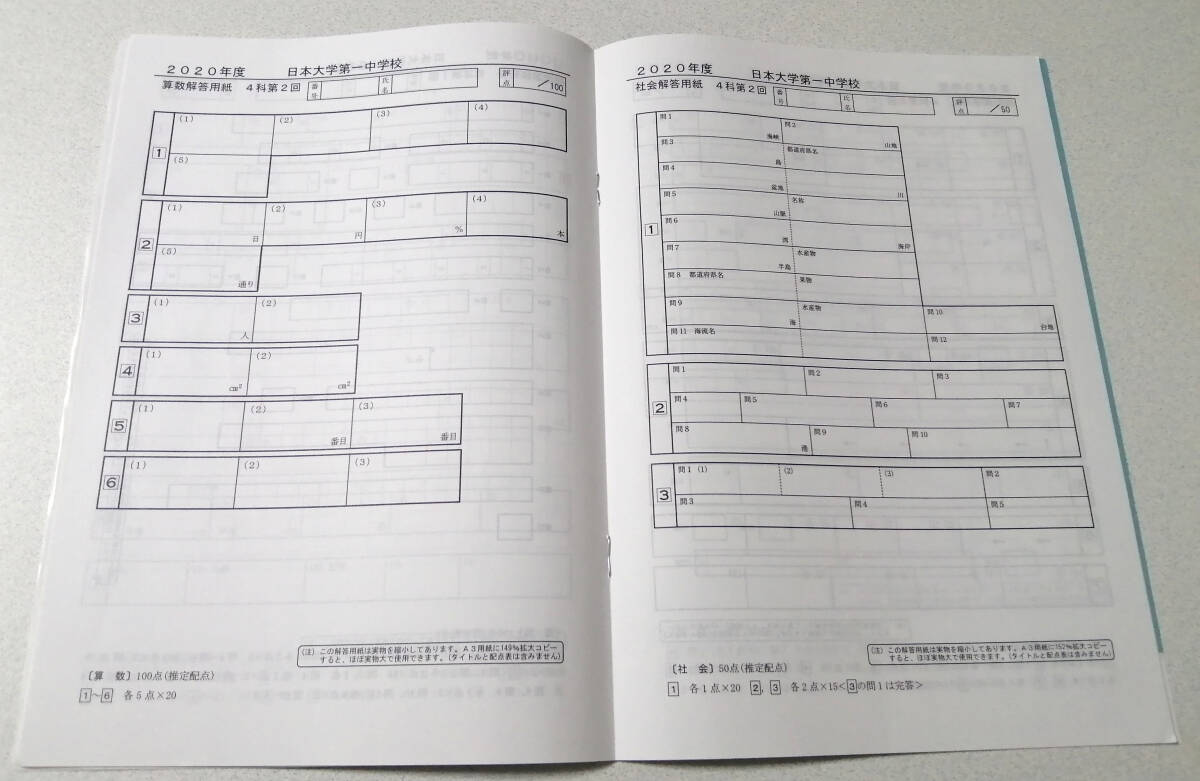 2020年度 日本大学第一中学校
算数解答用紙 4科第2回 番号 氏名 評点 /100
1 (1) (2) (3) (4)
(5)
2 (1) 日 (2) 円 (3) % (4) 本
(5) 通り
3 (1) 人 (2)
4 (1) cm² (2) cm²
5 (1) (2) 番目 (3) 番目
6 (1) (2) (3)
(注) この解答用紙は実物を縮小してあります。A3用紙に149%拡大コピー
すると、ほぼ実物大で使用できます。(タイトルと配点表は含みません)
〔算 数〕100点(推定配点)
1~6 各5点×20
2020年度 日本大学第一中学校
社会解答用紙 4科第2回 番号 氏名 評点 /50
1 問1 海峡 問2 山地
問3 島 都道府県名
問4 盆地 川
問5 山脈 名称
問6 湾 海岸
問7 半島 水産物
問8 都道府県名 果物
問9 海 水産物 問10 台地
問11 海流名 問12
2 問1 問2 問3
問4 問5 問6 問7
問8 港 問9 問10
3 問1 (1) (2) (3) 問2
問3 問4 問5
(注) この解答用紙は実物を縮小してあります。A3用紙に152%拡大コピー
すると、ほぼ実物大で使用できます。(タイトルと配点表は含みません)
〔社 会〕50点(推定配点)
1 各1点×20 2, 3 各2点×15<3の問1は完答>